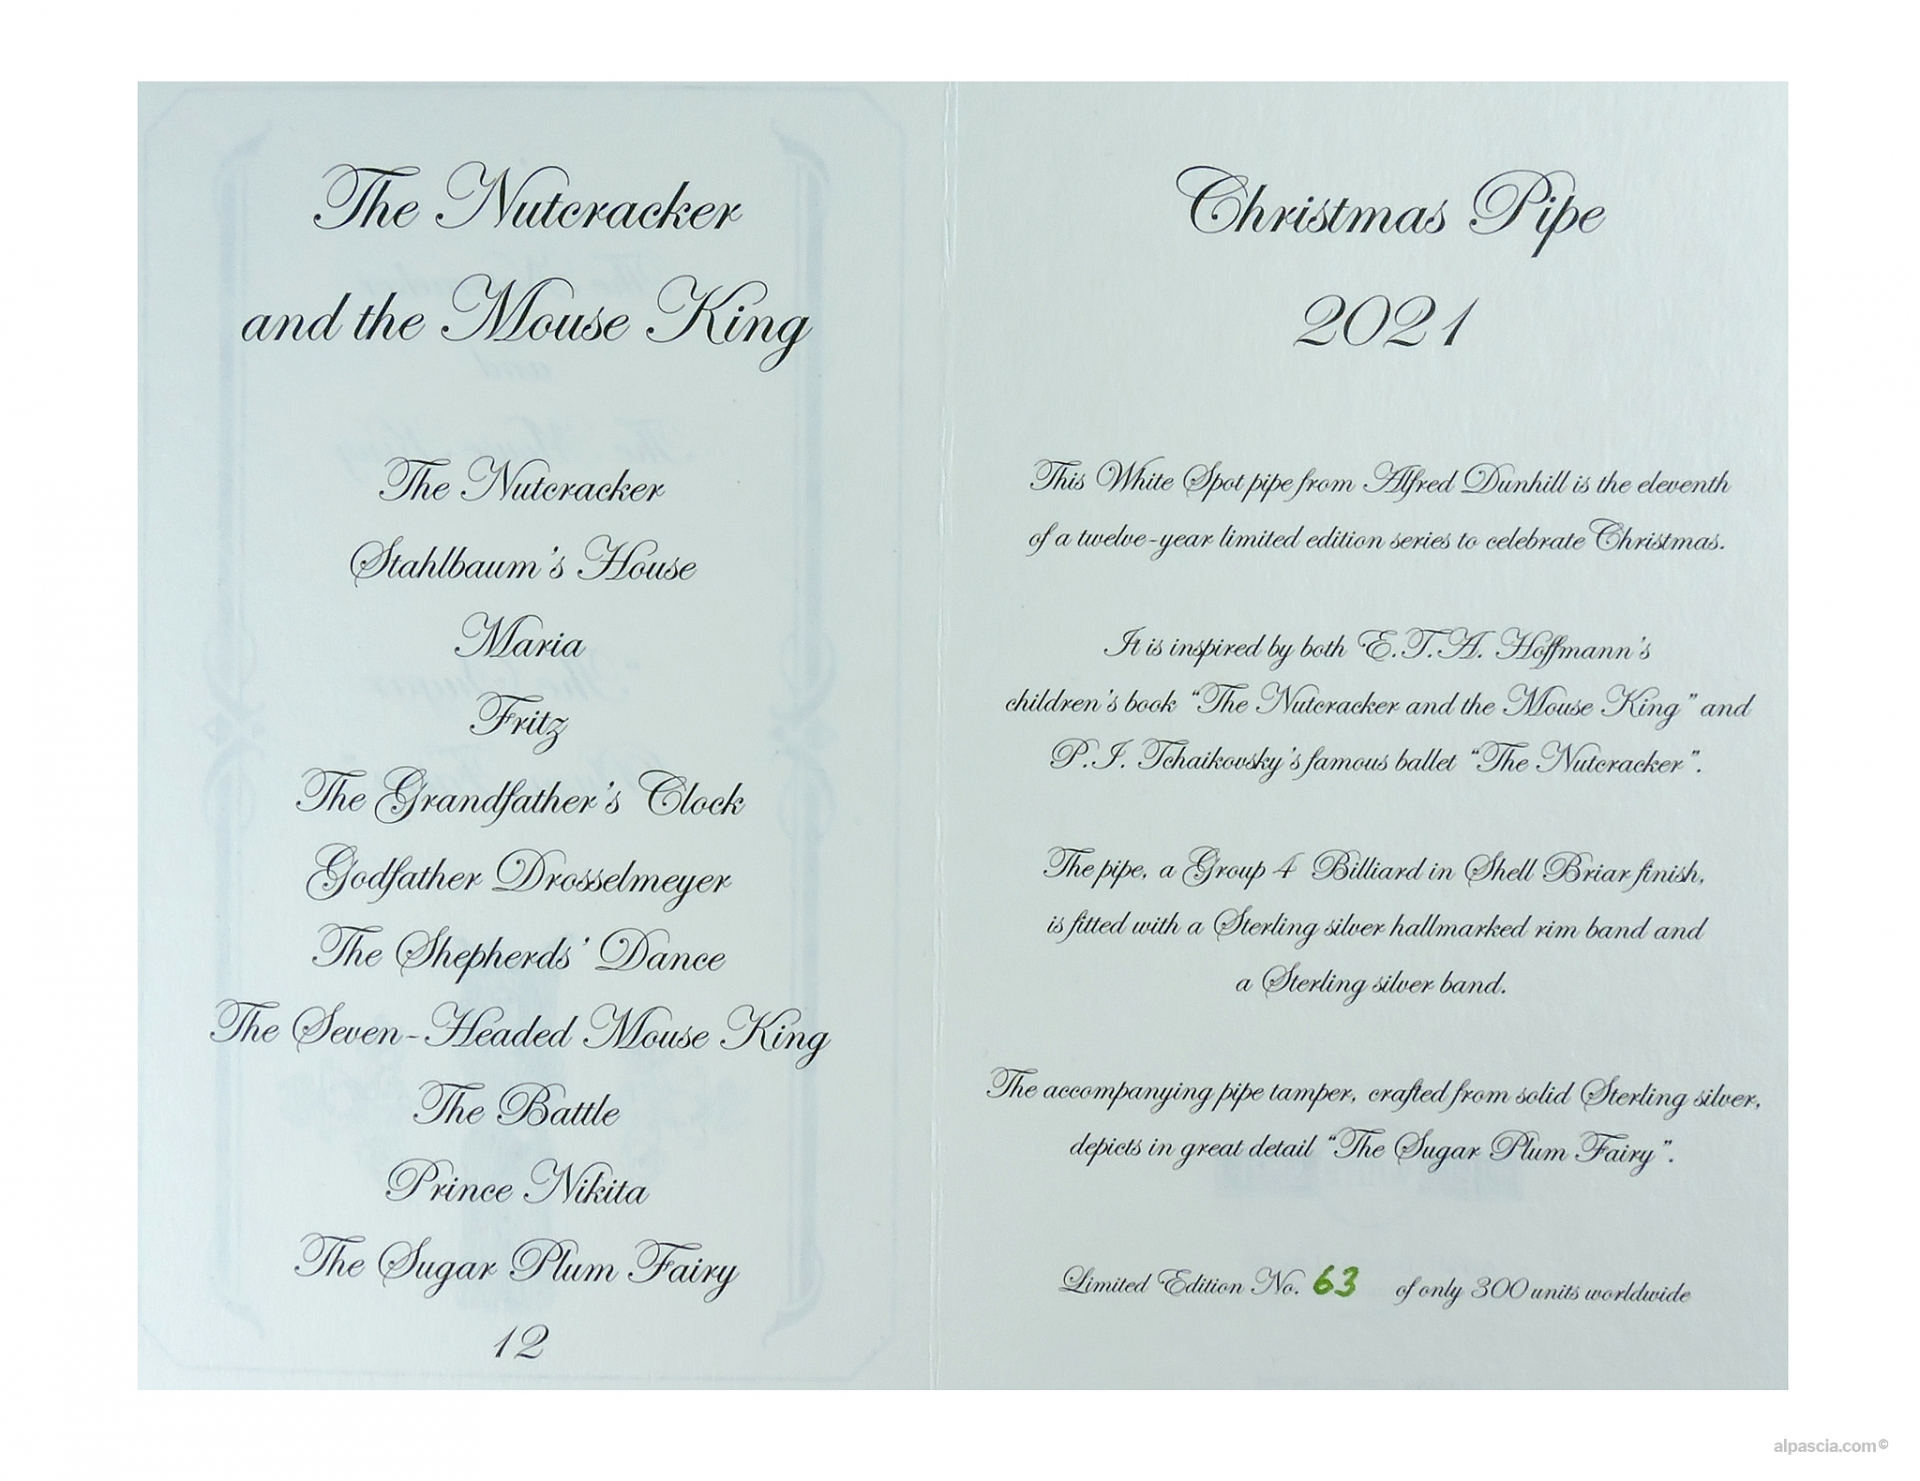 The Nutcracker
and the Mouse King
The Nutcracker
Stahlbaum's House
Maria
Fritz
The Grandfather's Clock
Godfather Drosselmeyer
The Shepherds' Dance
The Seven-Headed Mouse King
The Battle
Prince Nikita
The Sugar Plum Fairy
12
Christmas Pipe
2021
This White Spot pipe from Alfred Dunhill is the eleventh
of a twelve-year limited edition series to celebrate Christmas.
It is inspired by both E.T.A. Hoffmann's
children's book "The Nutcracker and the Mouse King" and
P.I. Tchaikovsky's famous ballet "The Nutcracker".
The pipe, a Group 4 Billiard in Shell Briar finish,
is fitted with a Sterling silver hallmarked rim band and
a Sterling silver band.
The accompanying pipe tamper, crafted from solid Sterling silver,
depicts in great detail "The Sugar Plum Fairy".
Limited Edition No. 63 of only 300 units worldwide
alpascia.com©